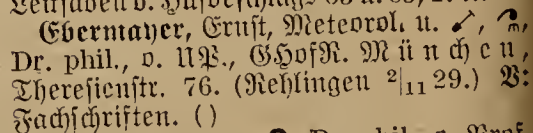 Ebermayer, Ernst, Meteorol. u.
Dr. phil., o. UP., GHofR. München,
Theresienstr. 76. (Rehlingen 2|11 29.) V:
Fachschriften. ()